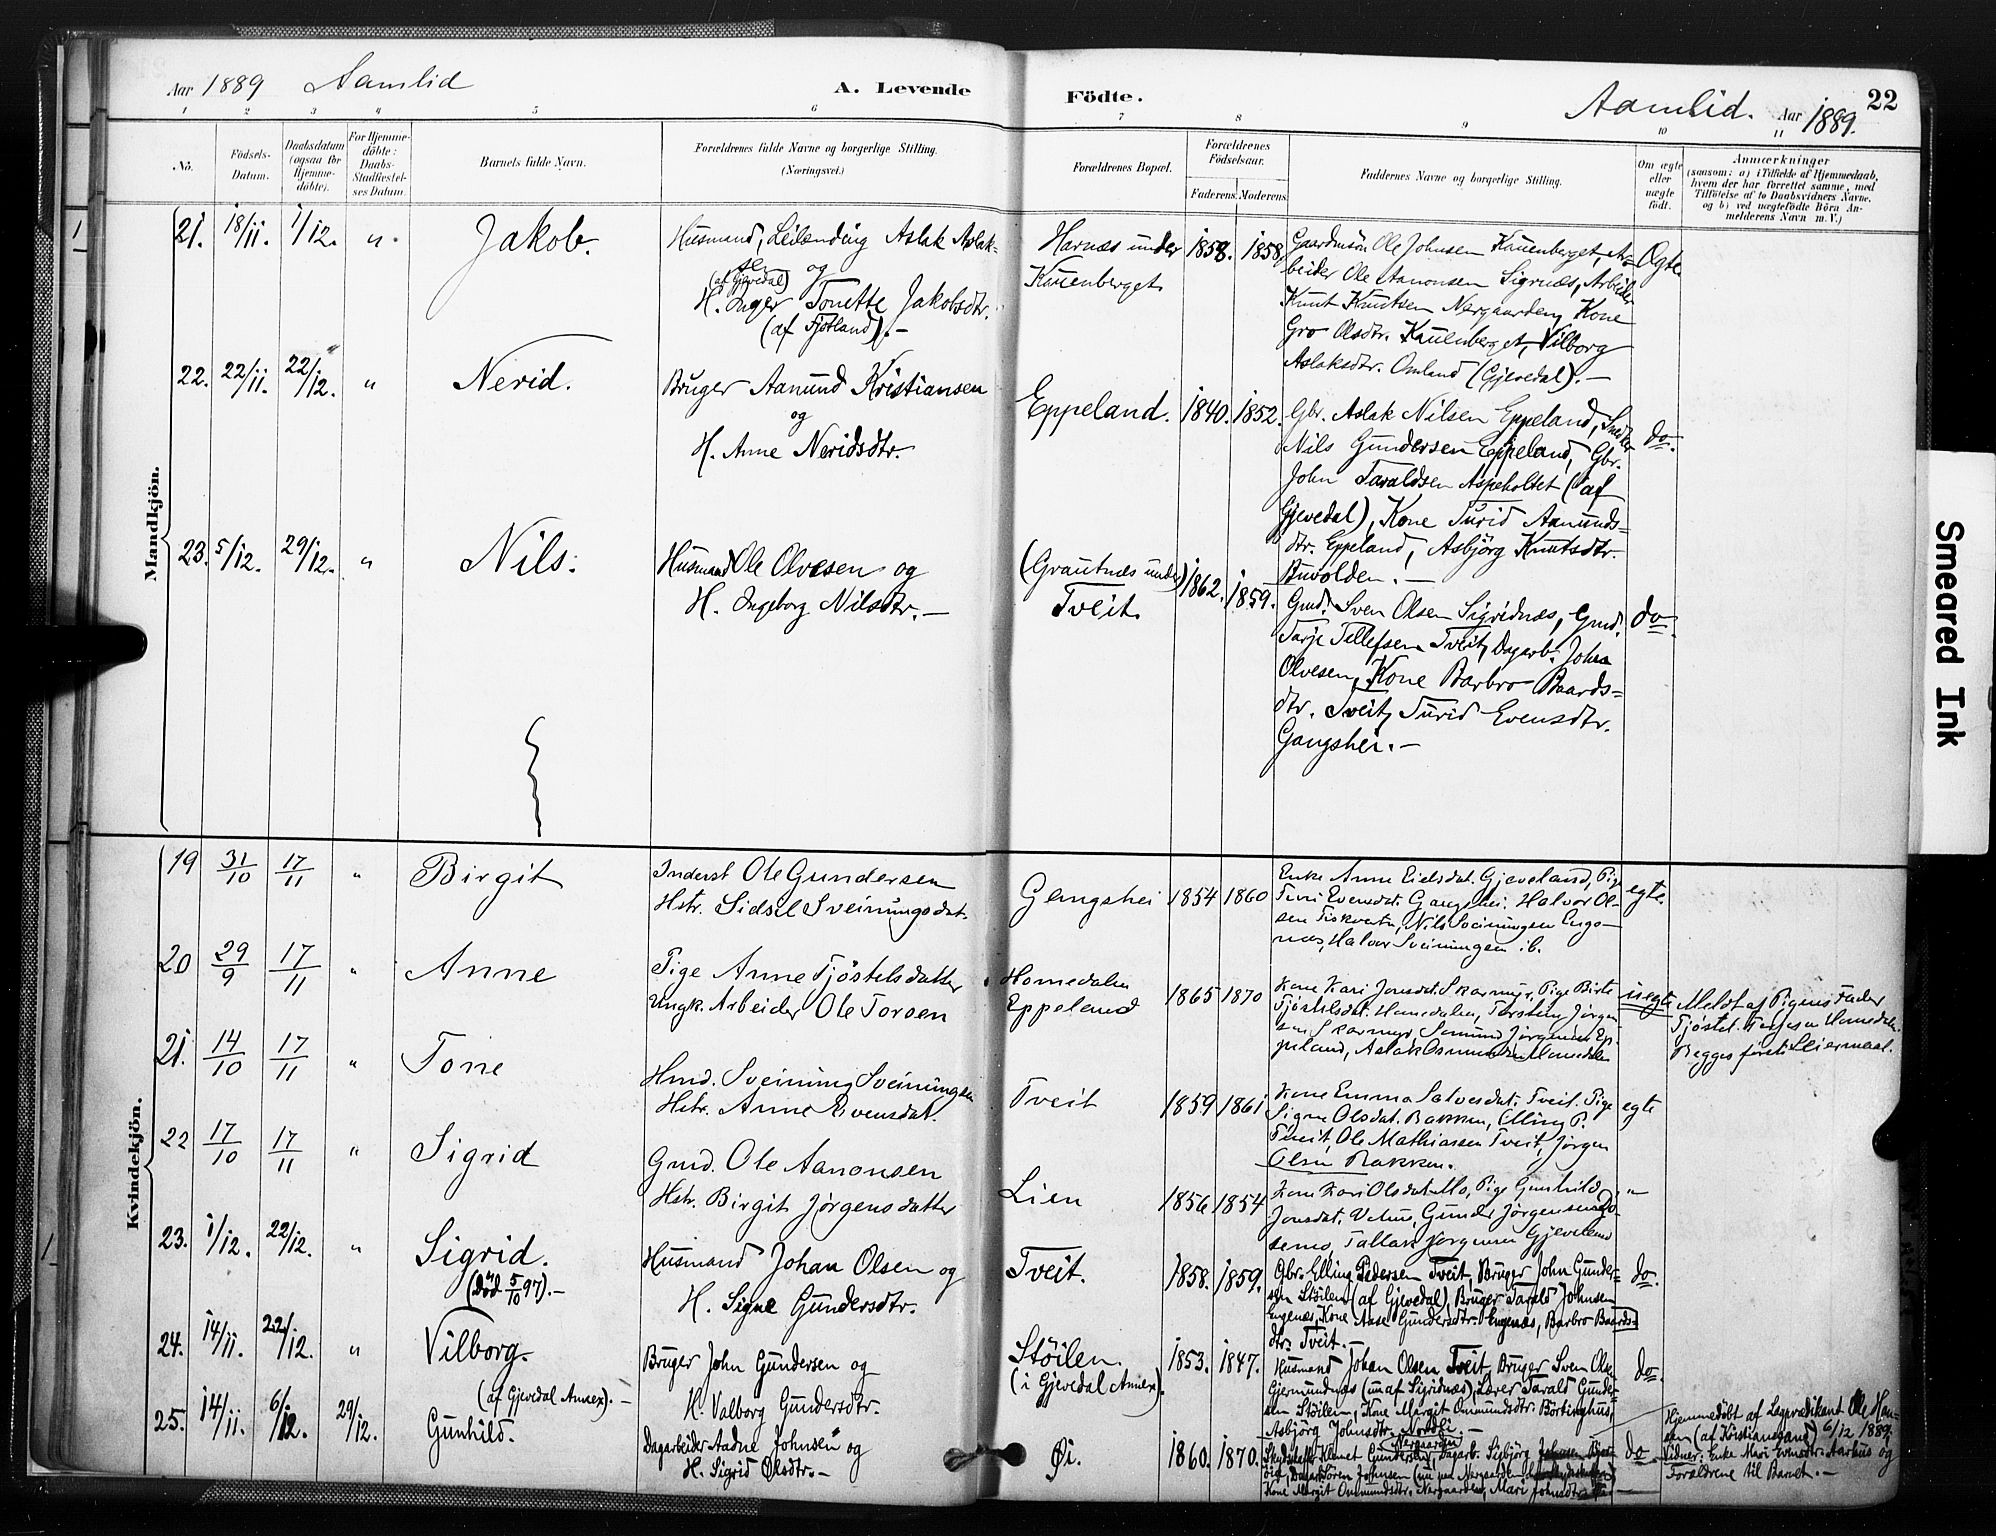 Aar 1889 Aamlid
A. Levende
Födte.
Aamlid. Aar 1889.
22
1 2 3 4 5 6 7 8 9 10 11
No.
Födsels-
Datum.
Daabsdatum
(ogsaa for
Hjemme-
döbte).
For Hjemme-
döbte:
Daabs-
Stadfæstel-
ses Datum.
Barnets fulde Navn.
Forældrenes fulde Navne og borgerlige Stilling.
(Næringsvei.)
Forældrenes Bopæl.
Forældrenes
Födselsaar.
Faderens. Moderens.
Faddernes Navne og borgerlige Stilling.
Om ægte
eller
uægte
födt.
Anmærkninger
(saasom: a) i Tilfælde af Hjemmedaab,
hvem der har forrettet samme, med
Tilföielse af to Daabsvidners Navne,
og b) ved uægtefödte Börn An-
melderens Navn m. V.)
Mandkjön.
21. 18/11. 1/12. " Jakob.
Husmand, Leilending Aslak Aslak-
sen og
(af Gjevedal)
H. Inger Tonette Jakobsdtr.
(af Fjotland).-
Harnæs under
Kauenberget
1858. 1858.
Gaardmsön Ole Johnsen Kauenberget, Ar-
beider Ole Aanonsen Sigrnæs, Arbeider
Knut Knutsen Nergaarden, Kone
Gro Olsdtr. Kauenberget, Vilborg
Aslaksdtr. Omland (Gjevedal).-
Ægte
22. 22/11. 22/12. " Nerid.
Bruger Aanund Kristiansen
og
H. Anne Neridsdtr.
Eppeland. 1840. 1852.
Gbr. Aslak Nilsen Eppeland, Snedker
Nils Gundersen Eppeland, Gbr.
John Taraldsen Aspeholtet (af
Gjevedal), Kone Turid Aanunds-
dtr. Eppeland, Asbjörg Knutsdtr.
Buvolden.-
do.
23. 5/12. 29/12. " Nils.
Husmand Ole Olvesen og
H. Ingeborg Nilsdtr.-
(Grautnæs under)
Tveit.
1862. 1859.
Gmd. Sven Olsen Sigridnæs, Gmd.
Tarje Tellefsen Tveit, Dagarb. Johan
Olvesen, Kone Barbro Baards-
dtr. Tveit, Turid Evensdtr.
Gangshei.-
do.
Kvindekjön.
19 31/10 17/11 " Birgit
Inderst Ole Gundersen
Hstr. Sidsel Sveinungsdat.
Gangshei 1854 1860
Enke Anne Eielsdat. Gjeveland, Pige
Turi Evensdat. Gangshei. Halvor Ol-
sen Fiskvatn, Nils Sveinungsen Enge-
næs, Halvor Sveinungsen ib.
egte.
20 29/9 17/11 " Anne
Pige Anne Tjöstelsdatter
Ungk. Arbeider Ole Torsen
Homedalen
Eppeland
1865 1870
Kone Kari Jonsdat. Skarmyr, Pige Birte
Tjöstelsdat. Homedalen, Torsten Jörgen-
sen Skarmyr, Aanund Jörgensen Ep-
peland, Aslak Osmundsen Homedalen
uegte
Meldt af Pigens Fader
Tjöstel Homedalen.
Begges förste Leiermaal.
21. 14/10 17/11 " Tone
Hmd. Sveinung Sveinungsen
Hstr. Anne Evensdat.
Tveit 1859 1861
Kone Emma Salvesdat. Tveit. Pige
Signe Olsdat. Bakken, Elling P.
Tveit, Ole Mathiassen Tveit, Jörgen
Olsen Bakken.
egte
22 17/10 17/11 " Sigrid
Gmd. Ole Aanonsen
Hstr. Birgit Jørgensdatter
Lien 1856 1854
Kone Kari Olsdat. Mo, Pige Gunhild
Jonsdat. Vehus, Gunder Jørgensen Do-
semo, Tallak Jørgensen Gjeveland
"
23. 1/12. 22/12. " Sigrid.
(Död 5/10 97).-
Husmand Johan Olsen og
H. Signe Gundersdtr.
Tveit. 1858. 1859.
Gbr. Elling Pedersen Tveit, Bruger John Gunder-
sen Stöilen (af Gjevedal), Bruger Tarald Johnsen
Engenæs, Kone Aase Gundersdtr. Engenæs, Barbro Baards-
dtr. Tveit.-
do.
24. 14/11. 22/12. " Vilborg.
(af Gjevedal Annex).-
Bruger John Gundersen og
H. Valborg Gundersdtr.
Stöilen.
(i Gjevedal Annex).
1853. 1847.
Husmand Johan Olsen Tveit, Bruger Sven Olsen
Gjermundnæs (nu af Sigridnæs), Lærer Tarald Gunder-
sen Stöilen, Kone Margit Ommundsdtr. Börtinghus,
Asbjörg Johnsdtr. Nordli.
do.
25. 14/11. 6/12. 29/12. Gunhild.
Dagarbeider Aadne Johnsen og
H. Sigrid Olsdtr.-
Øi. 1860. 1870.
Nergaarden
Klemet Gundersen, Dagarb.
Sören Johnsen
Kone Margit Ommundsdtr. Nergaarden, Mari Johnsdtr.
do
Hjemmedöbt af Lægprædikant Ole Han-
sen (af Kristiansand) 6/12 1889.
Vidner: Enke Mari Evensdtr. Aarhus og
Forældrene til Barnet.-
Smeared Ink